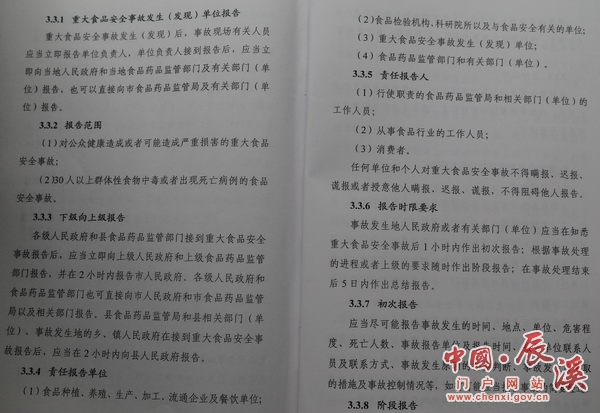 3.3.1 重大食品安全事故发生（发现）单位报告
重大食品安全事故发生（发现）后，事故现场有关人员
应当立即报告单位负责人，单位负责人接到报告后，应当立
即向当地人民政府和当地食品药品监管部门及有关部门（单
位）报告，也可以直接向市食品药品监管局及有关部门（单
位）报告。
3.3.2 报告范围
(1)对公众健康造成或者可能造成严重损害的重大食品
安全事故；
(2)30人以上群体性食物中毒或者出现死亡病例的食品
安全事故。
3.3.3 下级向上级报告
各级人民政府和县食品药品监管部门接到重大食品安全
事故报告后，应当立即向上级人民政府和上级食品药品监管
部门报告，并在2小时内报告市人民政府。各级人民政府和
食品药品监管部门也可直接向市人民政府和市食品药品监管
局以及相关部门报告。县食品药品监管局和县相关部门（单
位）、事故发生地的乡、镇人民政府在接到重大食品安全事
故报告后，应当在2小时内向县人民政府报告。
3.3.4 责任报告单位
(1)食品种植、养殖、生产、加工、流通企业及餐饮单位；
(2)食品检验机构、科研院所以及与食品安全有关的单位；
(3)重大食品安全事故发生（发现）单位；
(4)食品药品监管部门和有关部门（单位）。
3.3.5 责任报告人
(1)行使职责的食品药品监管局和相关部门（单位）的
工作人员；
(2)从事食品行业的工作人员；
(3)消费者。
任何单位和个人对重大食品安全事故不得瞒报、迟报、
谎报或者授意他人瞒报、迟报、谎报，不得阻碍他人报告。
3.3.6 报告时限要求
事故发生地人民政府或者有关部门（单位）应当在知悉
重大食品安全事故后1小时内作出初次报告；根据事故处理
的进程或者上级的要求随时作出阶段报告；在事故处理结束
后5日内作出总结报告。
3.3.7 初次报告
应当尽可能报告事故发生的时间、地点、单位、危害程
度、死亡人数、事故报告单位及报告时间、单位联系人
员及联系方式、事故发生原因的判断、事故发生
的措施及事故控制情况等，如
3.3.8 阶段报告
中國·辰溪
门户网站